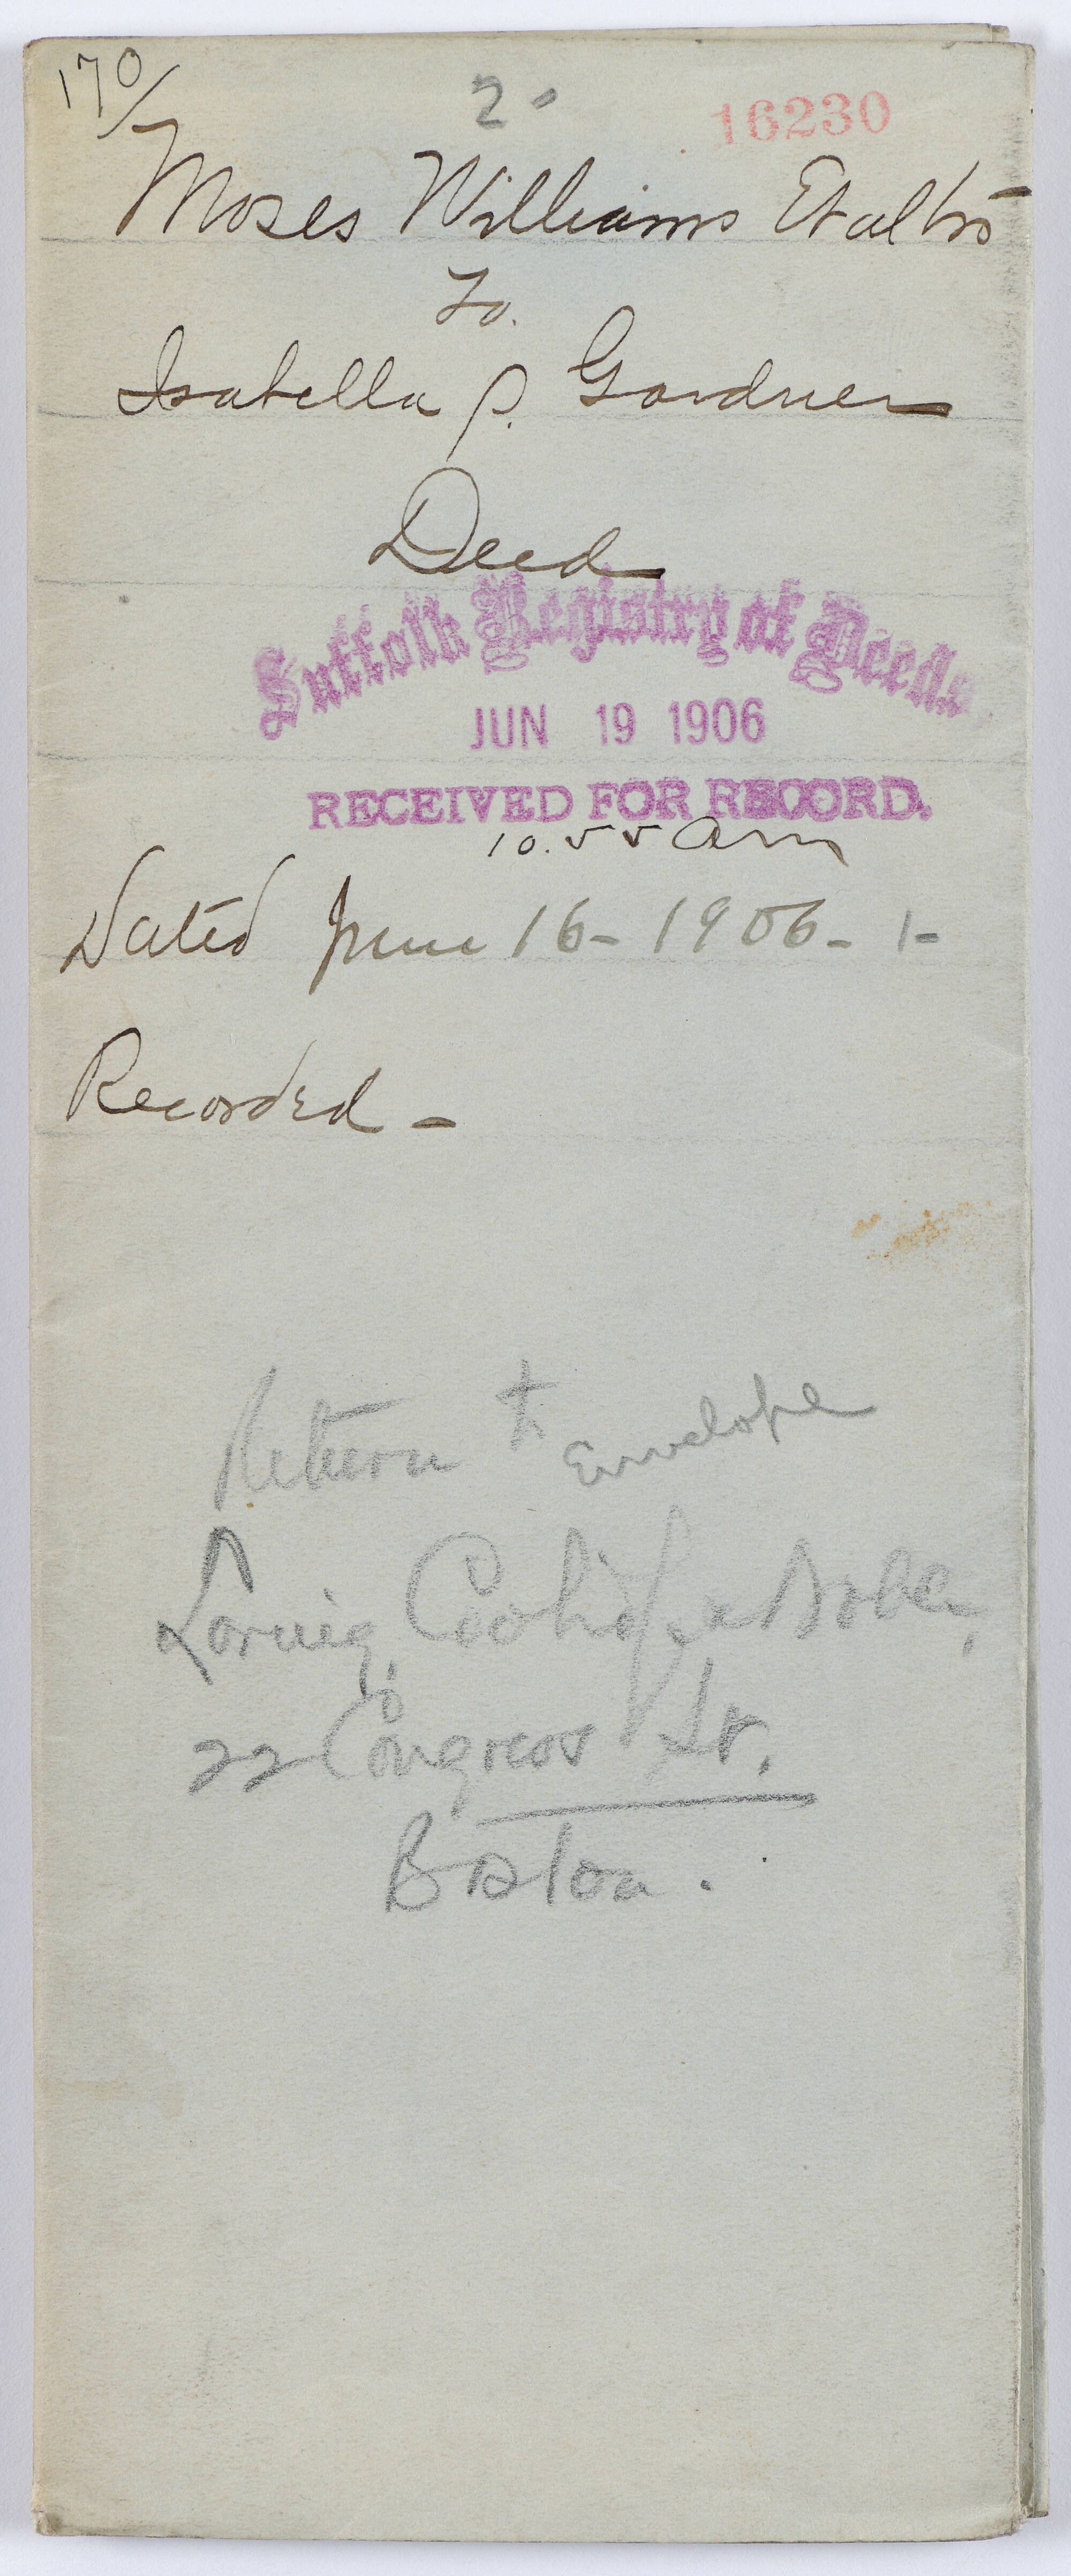 170/
2-
16230
Moses Williams Et al Trs
To.
Isabella S. Gardner
Deed
Suffolk Registry of Deeds
JUN 19 1906
RECEIVED FOR RECORD.
10.55 am
Dated June 16-1906-1-
Recorded-
Return to Envelope
Loring, Coolidge & Noble,
22 Congress St.
Boston.